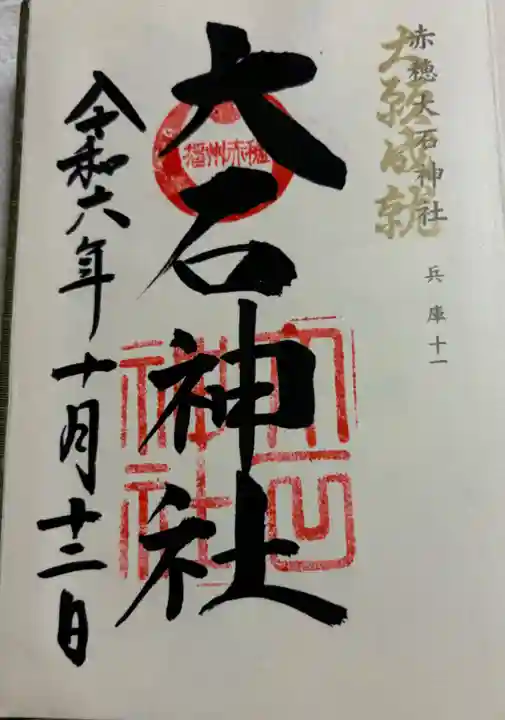 赤穂大石神社
大願成就
兵庫十一
大石神社
播州赤穂
大石神社
令和六年十月十二日